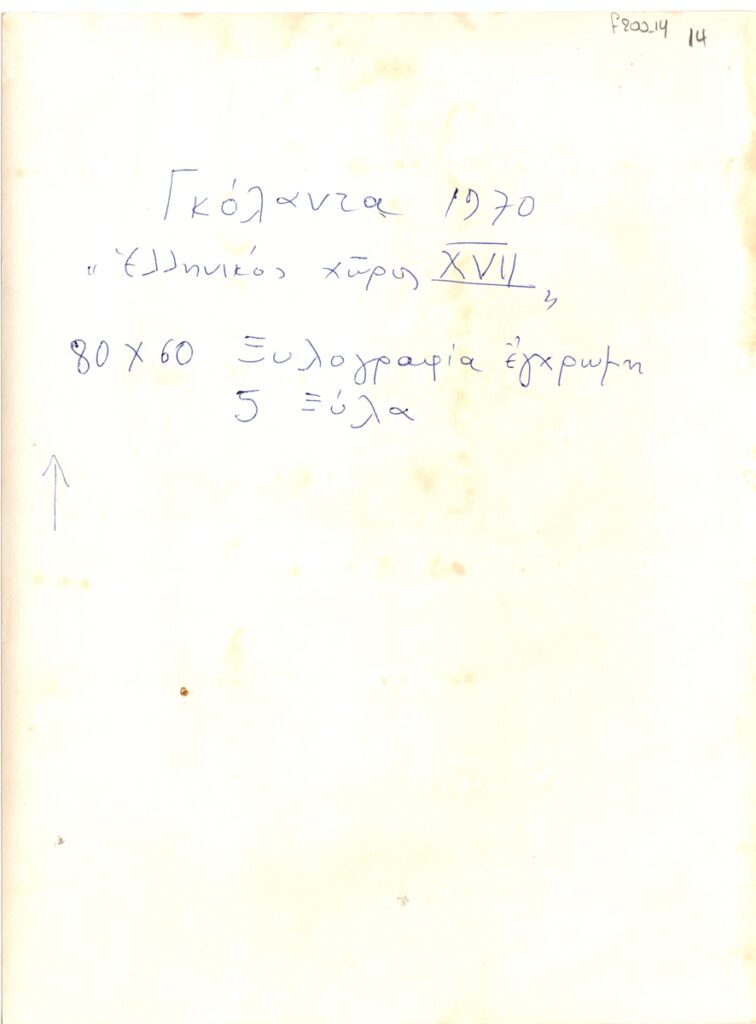 f200_14 14
Γκόλαντα 1970
"Ἑλληνικός χῶρος XVII"
80 X 60 Ξυλογραφία ἔγχρωμη
5 Ξύλα